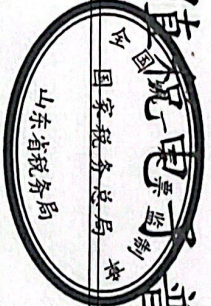 税电子
全国统一票监制章
国家税务总局
山东省税务局